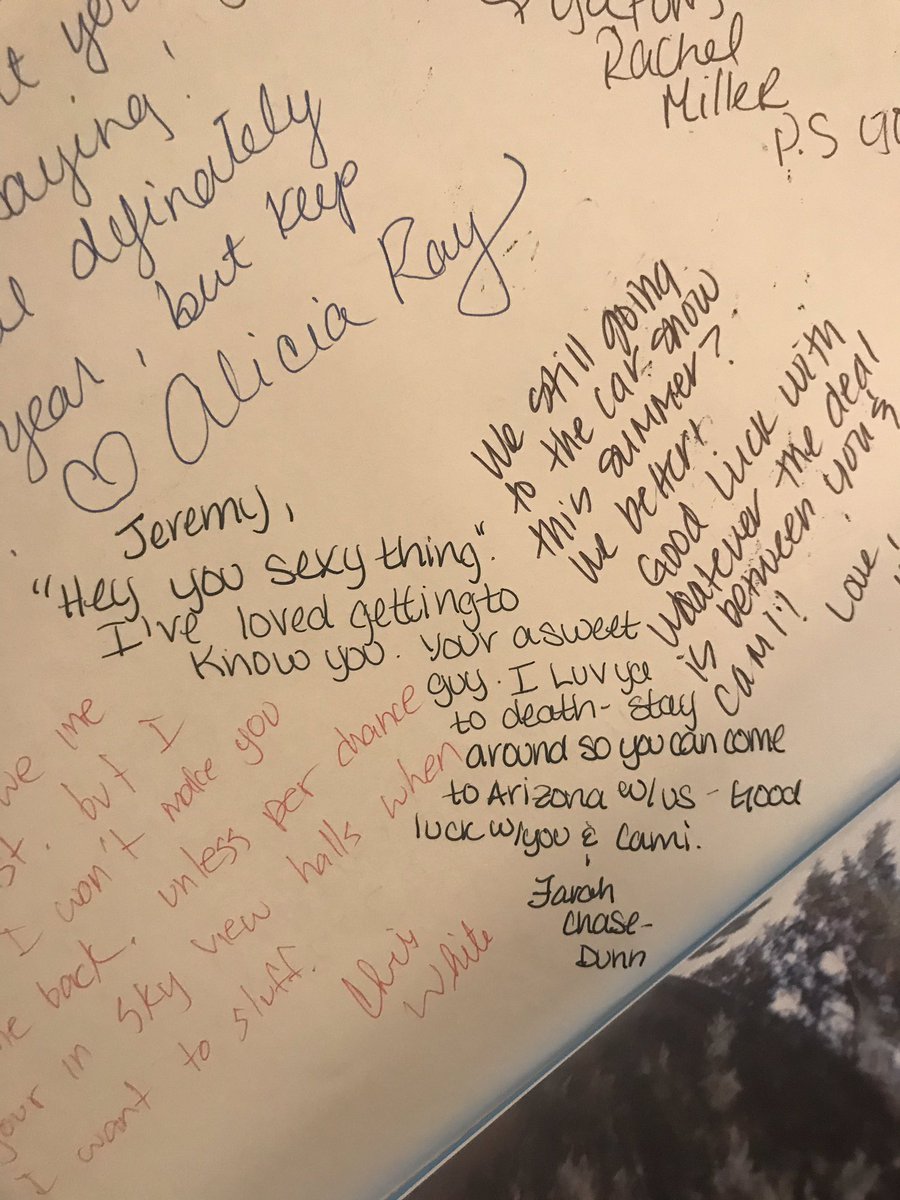 Rachel
Miller
P.S
definately
year, but keep
♡ Alicia Ray
We still going
to the car show
this summer?
We better!
Good luck with
whatever the deal
is between you &
Cami!!
Love,
Jeremy,
"Hey you sexy thing".
I've loved getting to
know you. Your a sweet
guy. I Luv ya
to death - stay
around so you can come
to Arizona w/us - Good
luck w/you & Cami.
Farah
Chase-
Dunn
me
but I
I won't make you
back. unless per chance
your in Sky view halls when
I want to sluff.
Chris
White